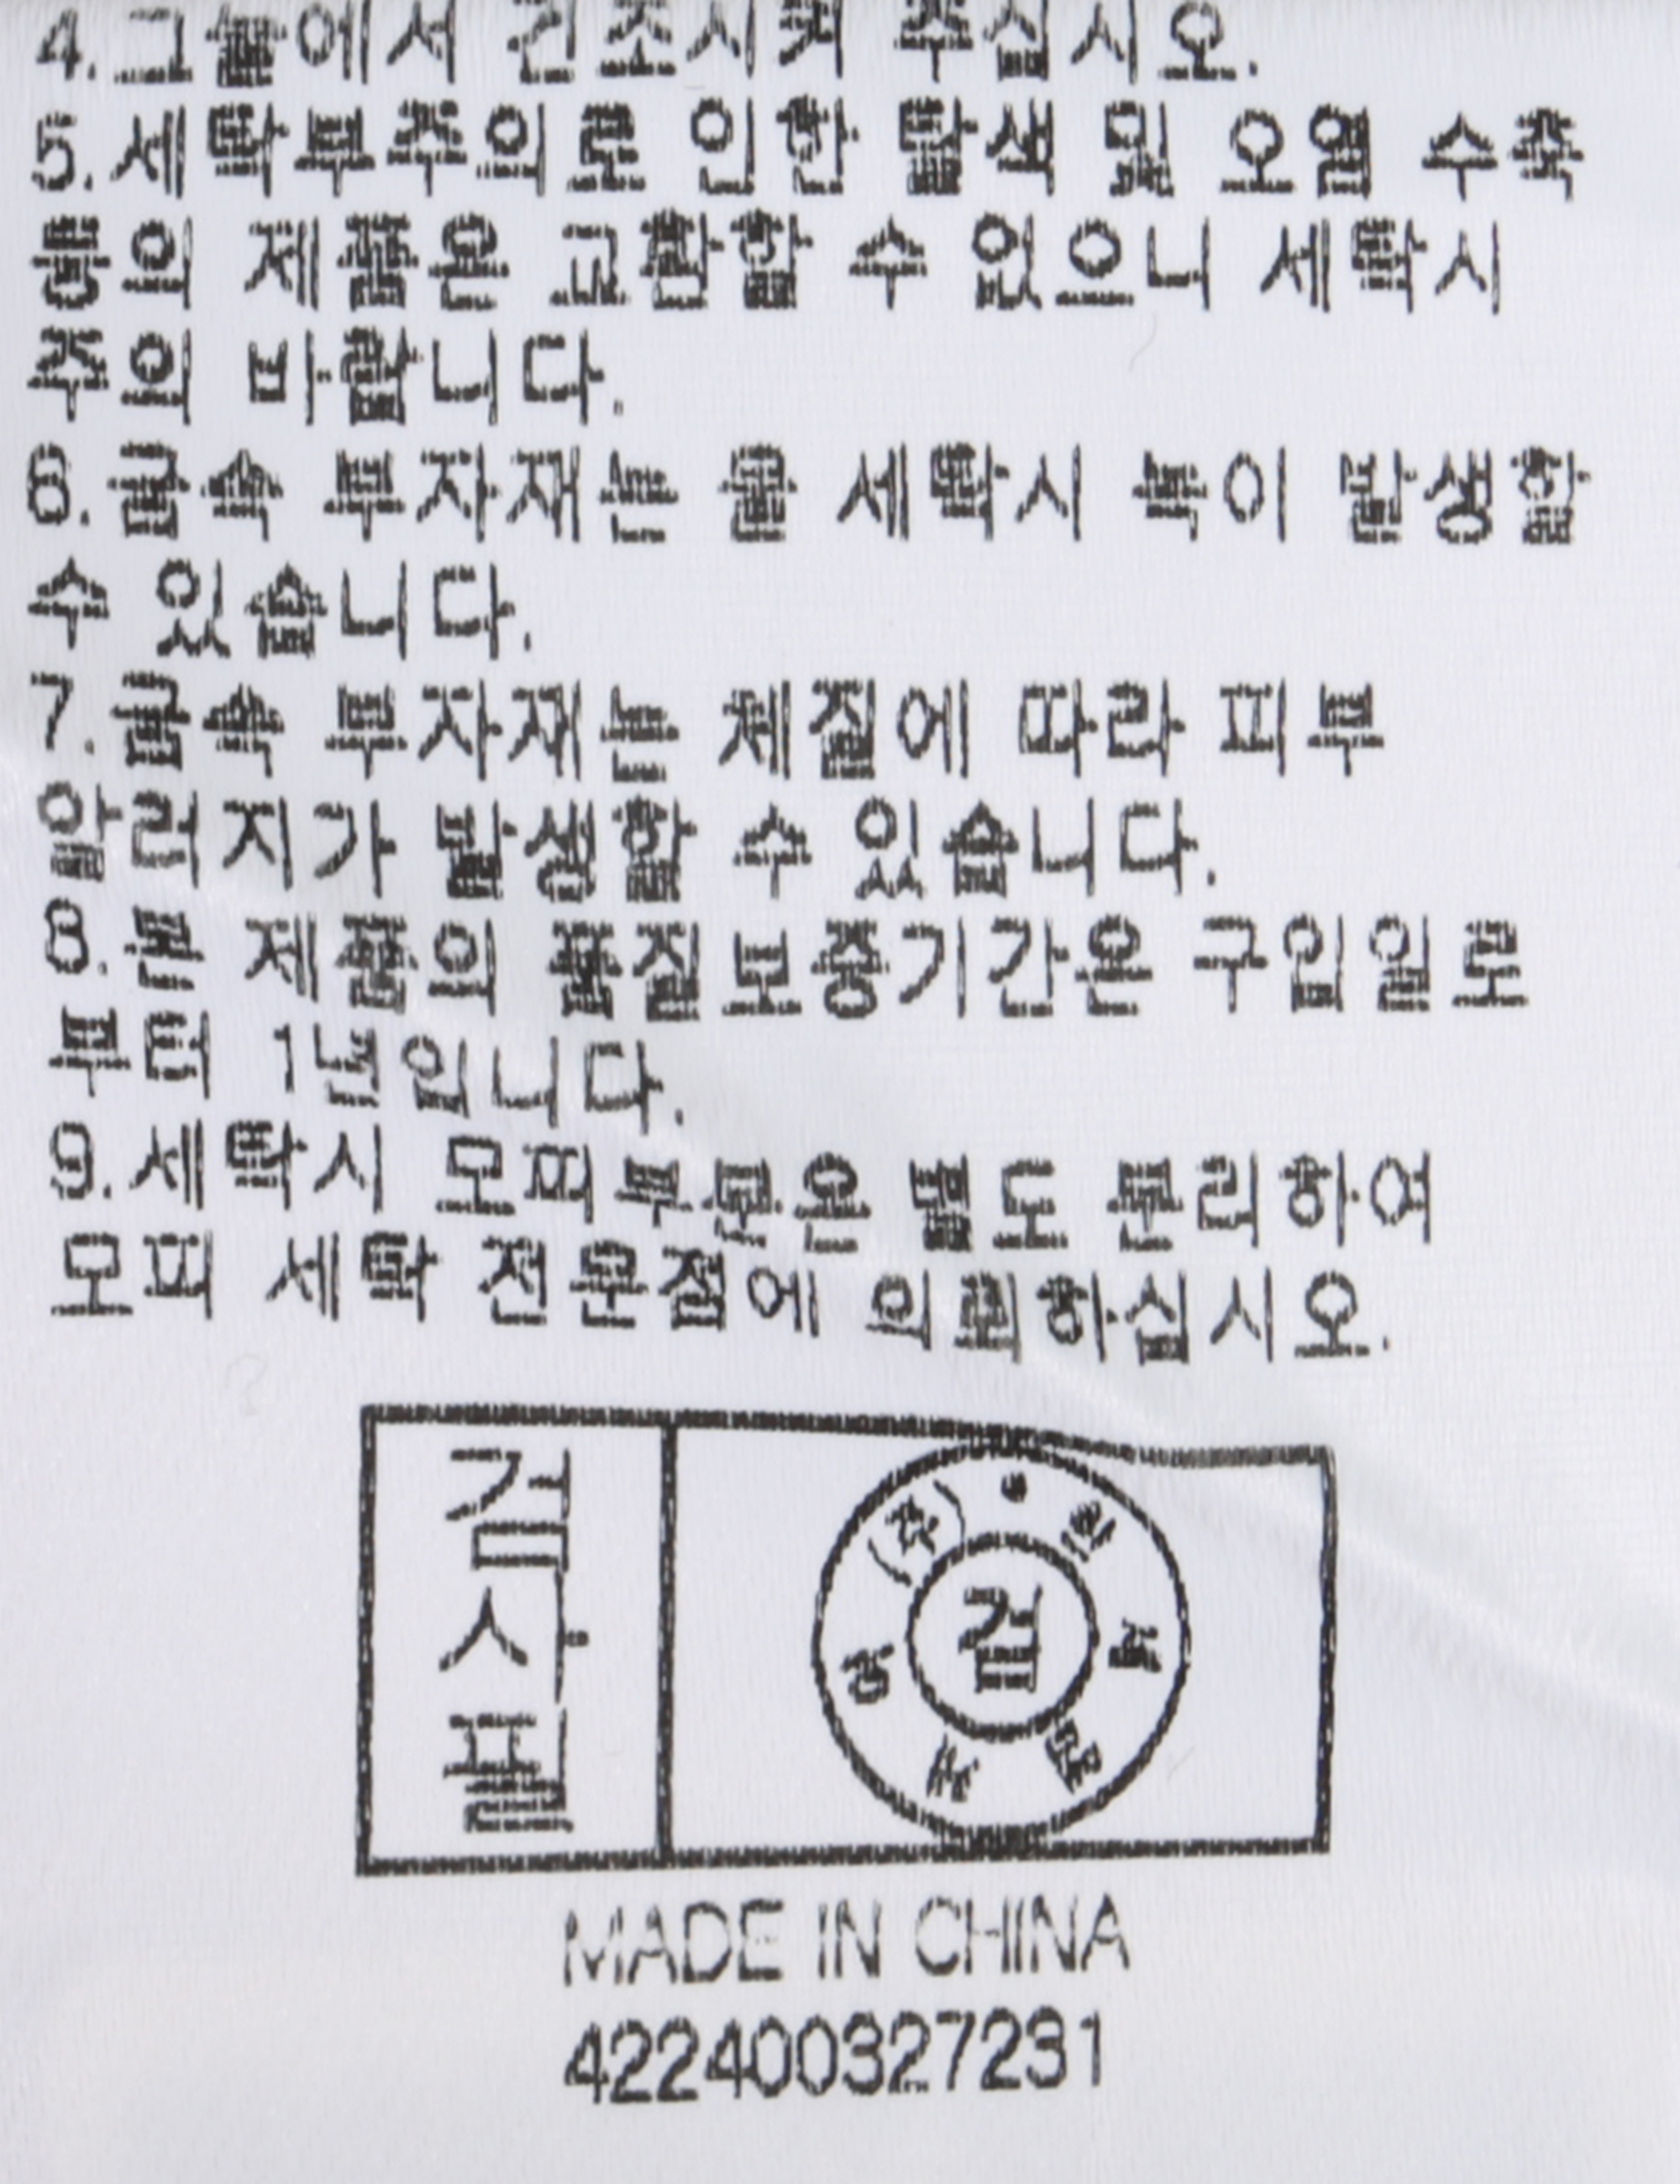 4.그늘에서 건조시켜 주십시오.
5.세탁부주의로 인한 탈색 및 오염 수축
등의 제품은 교환할 수 없으니 세탁시
주의 바랍니다.
6.금속 부자재는 물 세탁시 녹이 발생할
수 있습니다.
7.금속 부자재는 체질에 따라 피부
알러지가 발생할 수 있습니다.
8.본 제품의 품질보증기간은 구입일로
부터 1년입니다.
9.세탁시 모피부분은 별도 분리하여
모피 세탁 전문점에 의뢰하십시오.
검사필
검
MADE IN CHINA
422400327231